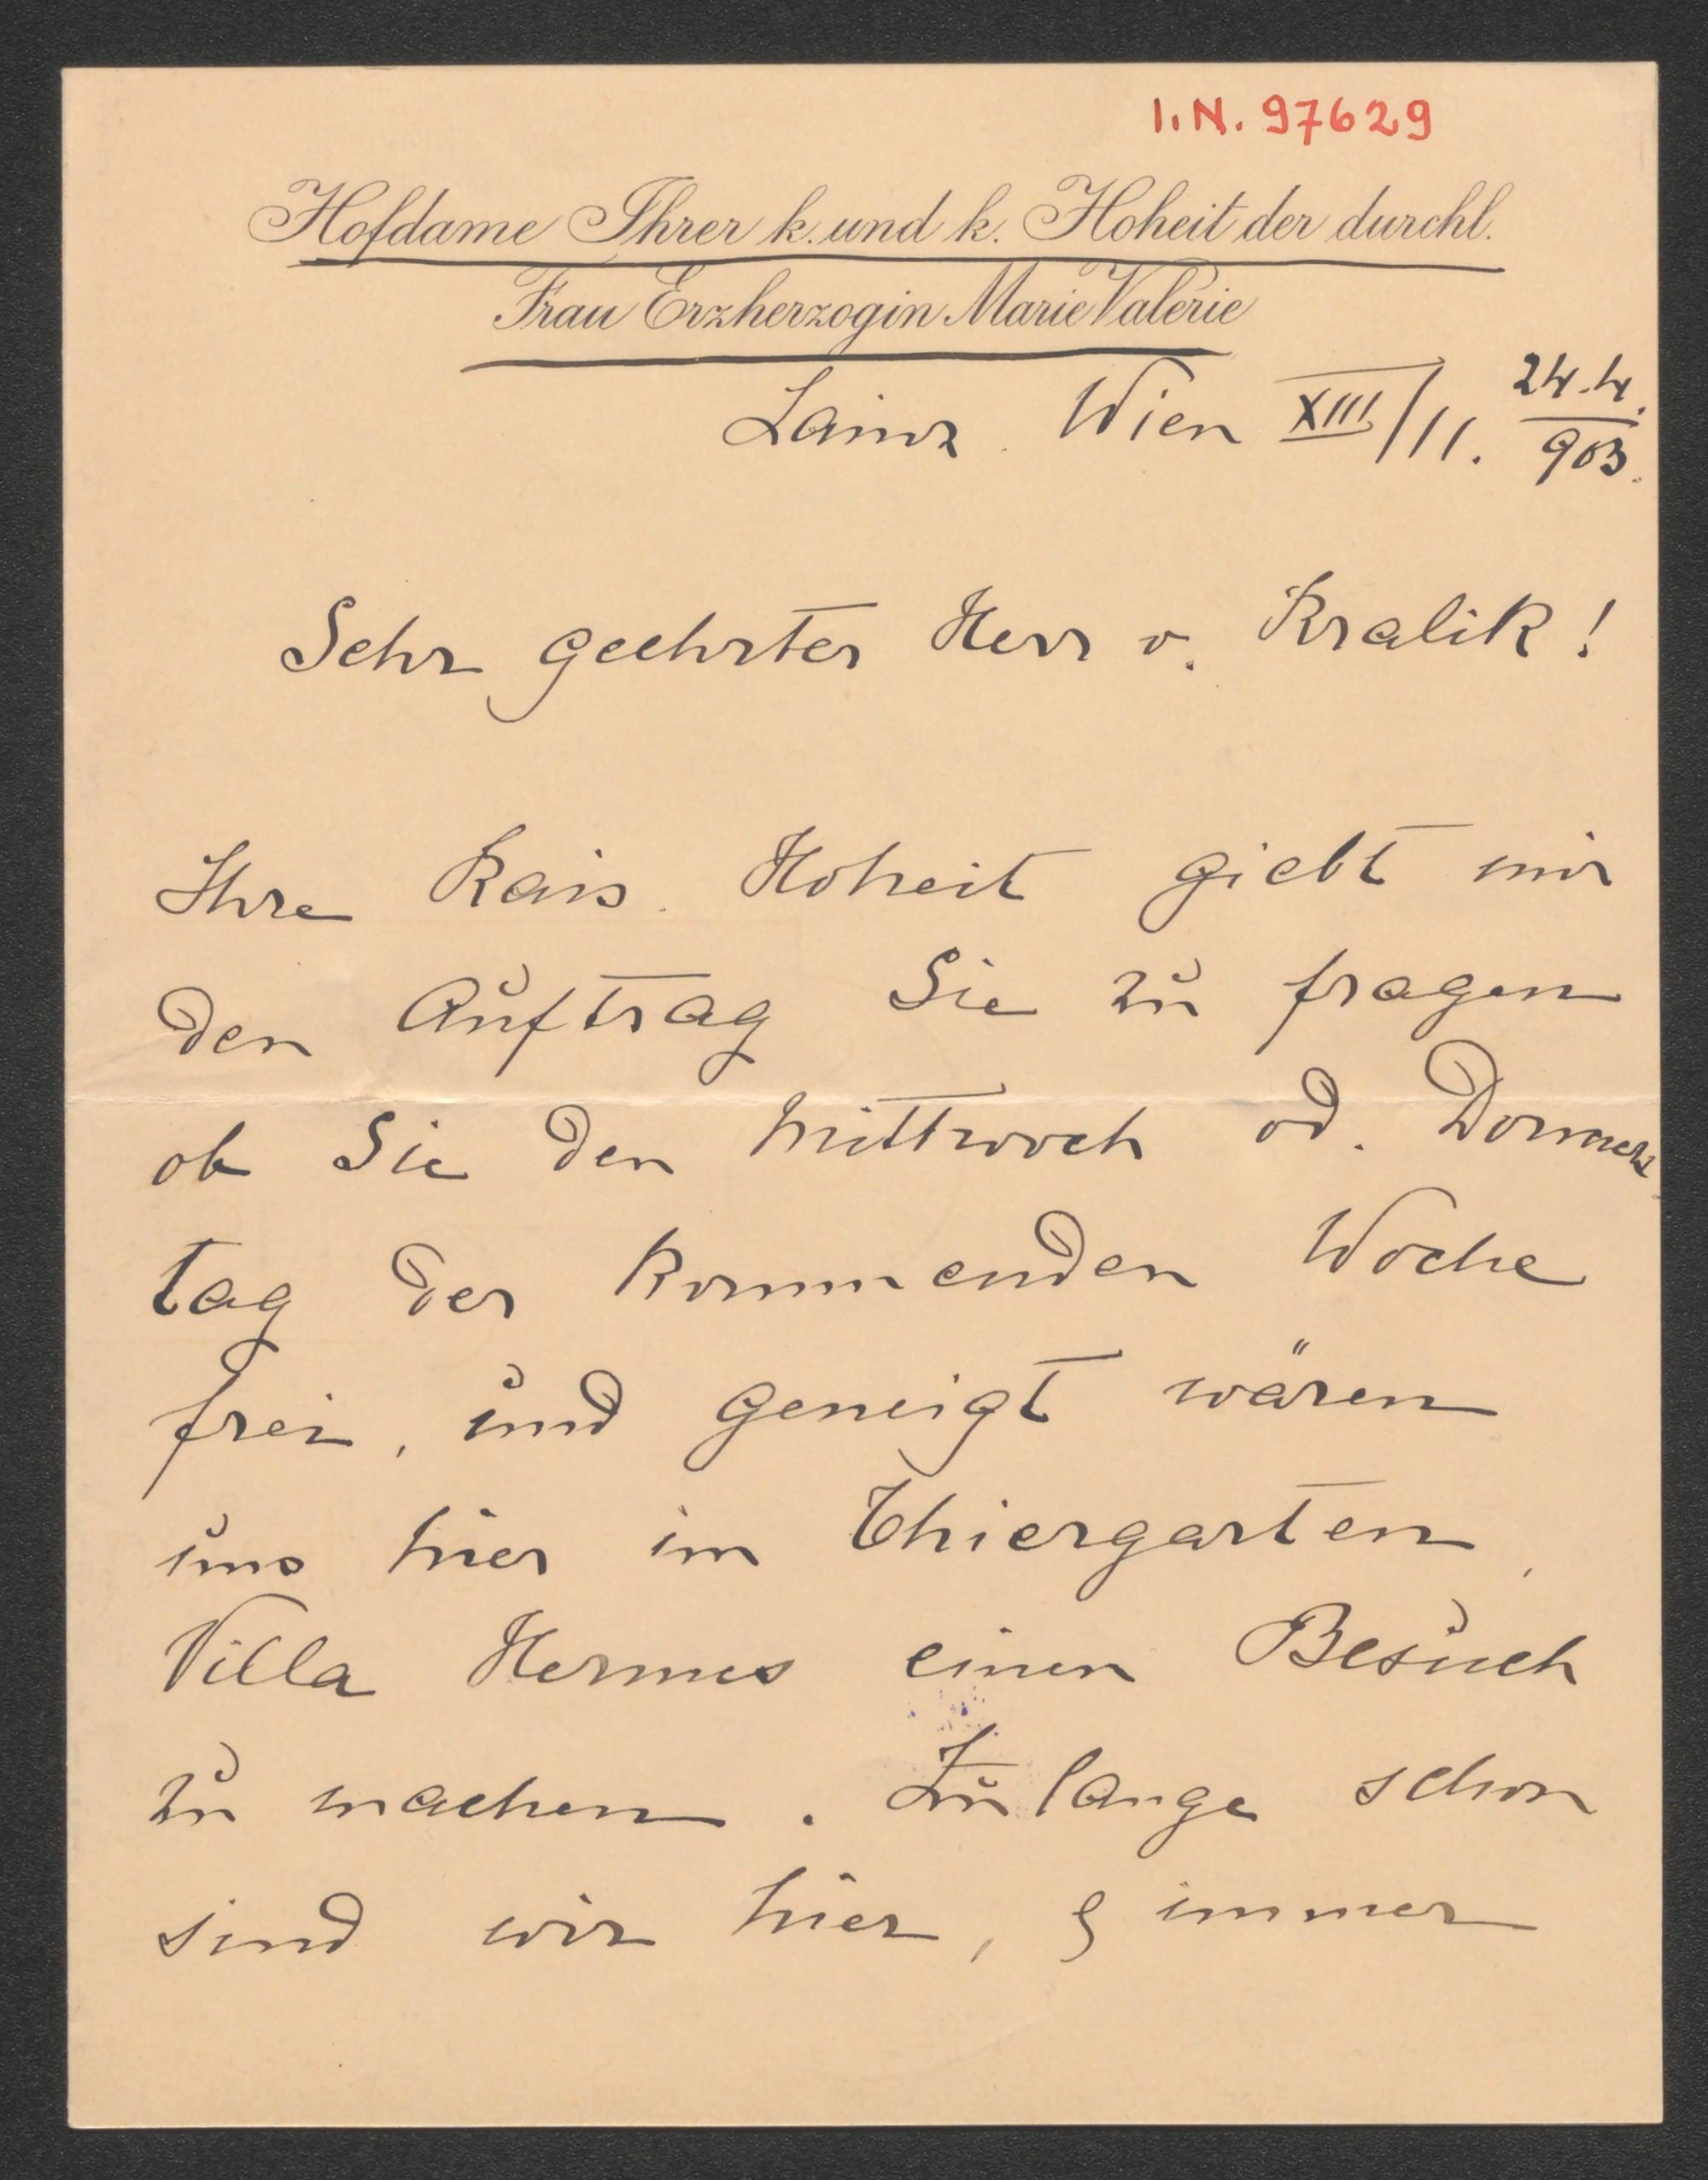 I.N. 97629
Hofdame Ihrer k. und k. Hoheit der durchl.
Frau Erzherzogin Marie Valerie
Lainz. Wien XIII/11. 24.4.
903.
Sehr geehrter Herr v. Kralik!
Ihre Kais. Hoheit giebt mir
den Auftrag Sie zu fragen
ob Sie den Mittwoch od. Donners
tag der kommenden Woche
frei, und geneigt wären
uns hier im Thiergarten,
Villa Hermes einen Besuch
zu machen. Zu lange schon
sind wir hier, & immer